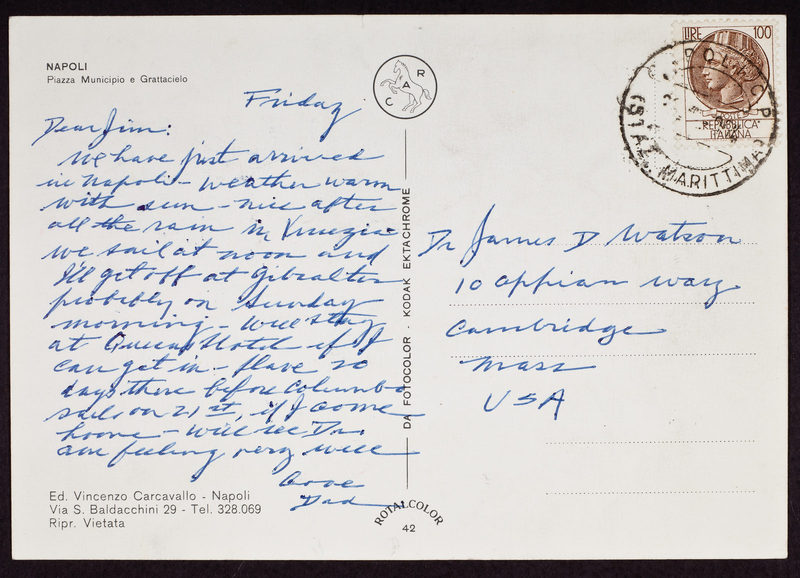 NAPOLI
Piazza Municipio e Grattacielo
C A R
LIRE 100
REPUBBLICA
ITALIANA
NAPOLI C.P.
(STAZ. MARITTIMA)
Friday
Dear Jim:
We have just arrived
in Napoli - weather warm
with sun - nice after
all the rain in Venezia -
we sail at noon and
I'll get off at Gibralter
probably on Sunday
morning - will stay
at Queens Hotel if I
can get in - Have 20
days there before Columbo
sails on 21st, if I come
home - will see Dr.
am feeling very well
Love
Dad
Dr James D Watson
10 Appian Way
Cambridge
Mass
USA
DA FOTOCOLOR - KODAK EKTACHROME
Ed. Vincenzo Carcavallo - Napoli
Via S. Baldacchini 29 - Tel. 328.069
Ripr. Vietata
ROTALCOLOR
42